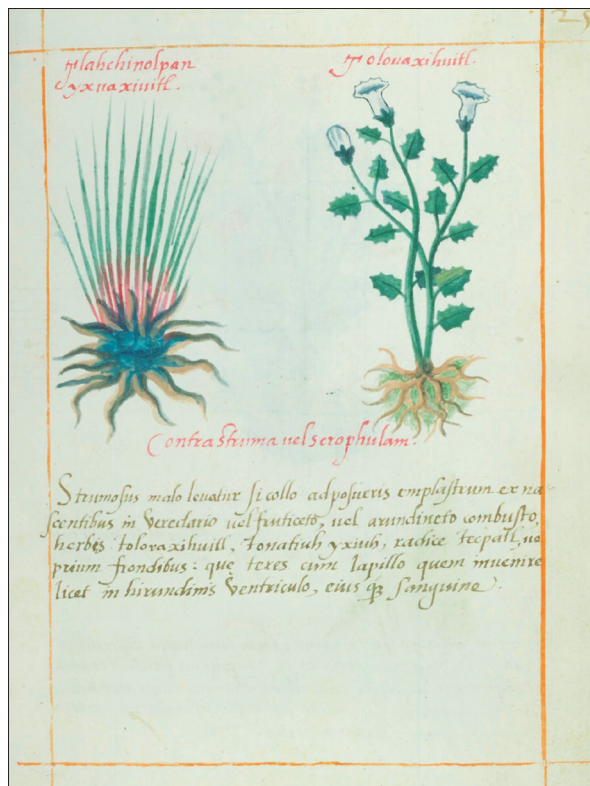 Tlahchinolpan
yxuaxiuitl.
Tolouaxihuitl.
Contra struma uel scrophulam.
Strumosus malo leuatur si collo adposueris emplastrum ex na
scentibus in Veredario uel fruticeto, uel arundineto combusto,
herbis toloraxihuitl, tonatiuh yxiuh, radice tecpatl, ue
prium frondibus: quę teres cum lapillo quem inuenire
licet in hirundinis Ventriculo, eius qȝ sanguine.